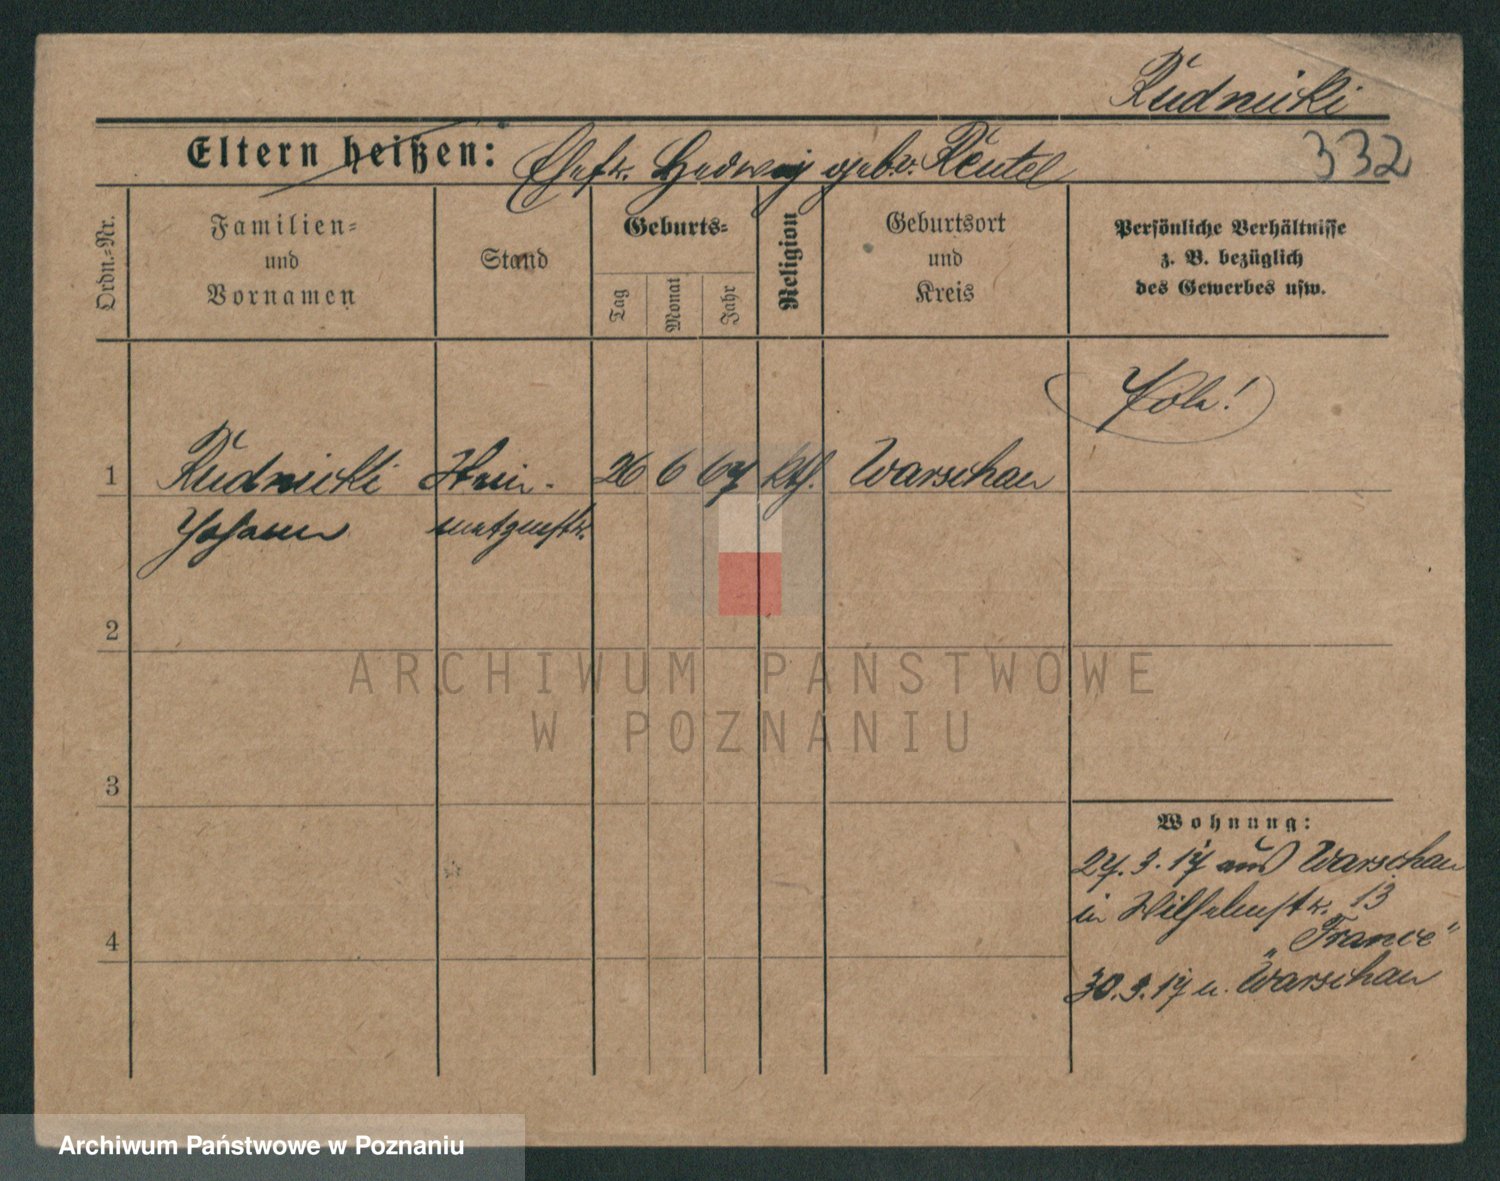 Rudnicki
Eltern heißen: Ehefr. Hedwig geb. Reutel
332
Ordn.-Nr.
Familien-
und
Vornamen
Stand
Geburts-
Tag
Monat
Jahr
Religion
Geburtsort
und
Kreis
Persönliche Verhältnisse
z. B. bezüglich
des Gewerbes usw.
Pole!
1 Rudnicki 26 6 67 kth. Warschau
Johann
2
3
4
Wohnung:
27.3.17 aus Warschau
in Wilhelmstr. 13
„France“
30.3.17 n. Warschau
ARCHIWUM PAŃSTWOWE
W POZNANIU
Archiwum Państwowe w Poznaniu